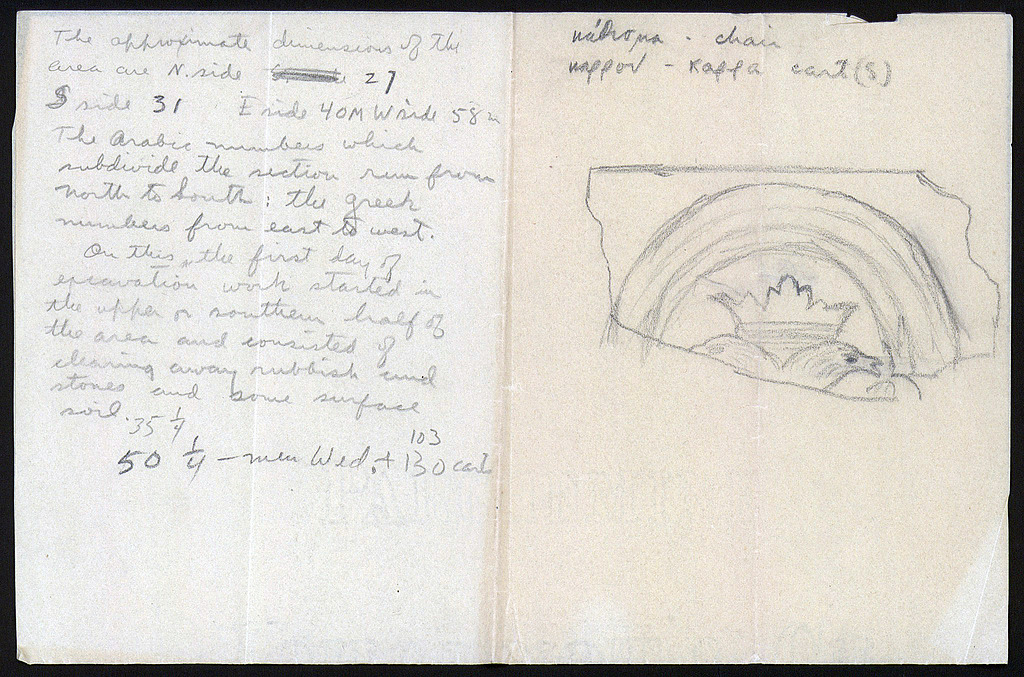 The approximate dimensions of the
area are N. side 27
S side 31 E side 40M W side 58m
The Arabic numbers which
subdivide the section run from
north to South: the greek
numbers from east to west.
On this, the first day of
excavation work started in
the upper or southern half of
the area and consisted of
clearing away rubbish and
stones and some surface
soil.
35 1/4
103
50 1/4 - men Wed. + 130 carts
- chair
- καρρα carts(s)